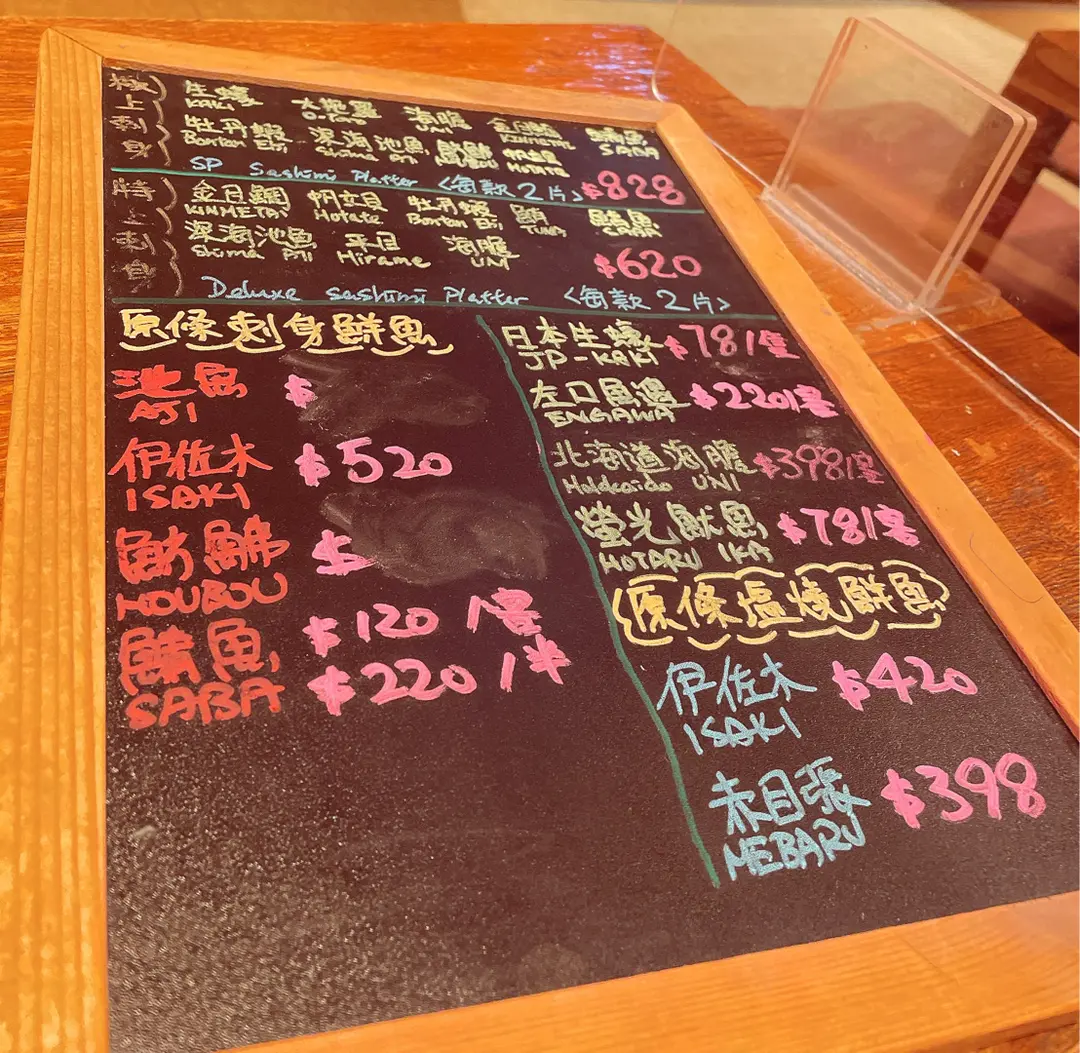 極上刺身
生蠔 大拖羅 海膽 金目鯛 鯖魚
KAKI O-Toro UNI KINMETAI SABA
牡丹蝦 深海池魚 帆立貝
Bontan Ebi Shima Aji HOTATE
SP Sashimi Platter <每款2片> $828
特上刺身
金目鯛 帆立貝 牡丹蝦 鯖魚
KINMETAI Hotate Bontan Ebi TUNA SABA
深海池魚 平目 海膽
Shima Aji Hirame UNI
$620
Deluxe sashimi Platter <每款2片>
原條刺身鮮魚
池魚 $
AJI
伊佐木 $520
ISAKI
$
HOUBOU
鯖魚 $120/客
SABA $220/半
日本生蠔 $78/隻
JP-KAKI
左口魚邊 $220/客
ENGAWA
北海道海膽 $398/客
Hokkaido UNI
螢光魷魚 $78/客
HOTARU IKA
原條塩燒鮮魚
伊佐木 $420
ISAKI
赤目張 $398
MEBARU